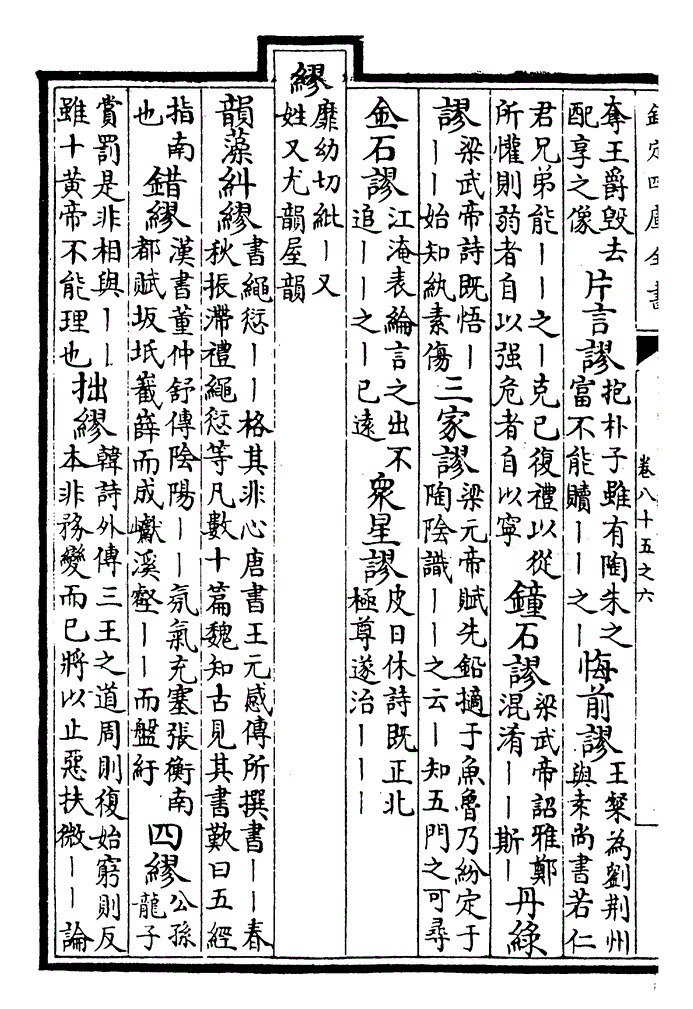 欽定四庫全書 卷八十五之六
奪王爵毀去配享之像 片言謬 抱朴子雖有陶朱之富不能贖丨丨之丨 悔前謬 王粲為劉荆州與袁尚書若仁
君兄弟能丨丨之丨克已復禮以從所懽則弱者自以强危者自以寧 鐘石謬 梁武帝詔雅鄭混淆丨丨斯丨 丹綠
謬 梁武帝詩既悟丨丨丨始知紈素傷 三家謬 梁元帝賦先鉛擿于魚魯乃紛定于陶陰識丨丨之云丨知五門之可尋
金石謬 江淹表綸言之出不追丨丨之丨已遠 衆星謬 皮日休詩既正北極尊遂治丨丨丨
繆 靡幼切紕丨又姓又尤韻屋韻
韻藻 糾繆 書繩愆丨丨格其非心唐書王元感傳所撰書丨丨春秋振滯禮繩愆等凡數十篇魏知古見其書歎曰五經
指南也 錯繆 漢書董仲舒傳陰陽丨丨氛氣充塞張衡南都賦坂坻嶻嶭而成甗溪壑丨丨而盤紆 四繆 公孫龍子
賞罰是非相與丨丨雖十黃帝不能理也 拙繆 韓詩外傳三王之道周則復始窮則反本非務變而已將以止惡扶微丨丨論